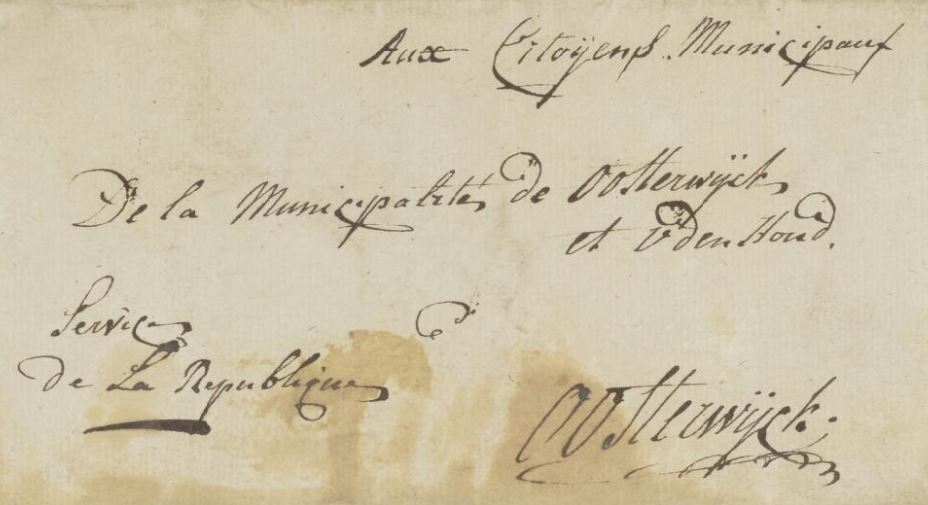 Aux Citoÿens Municipaux
De la Municipalités de Oosterwÿck
et Udenhoud.
Service
de La Republique
Oosterwÿck.